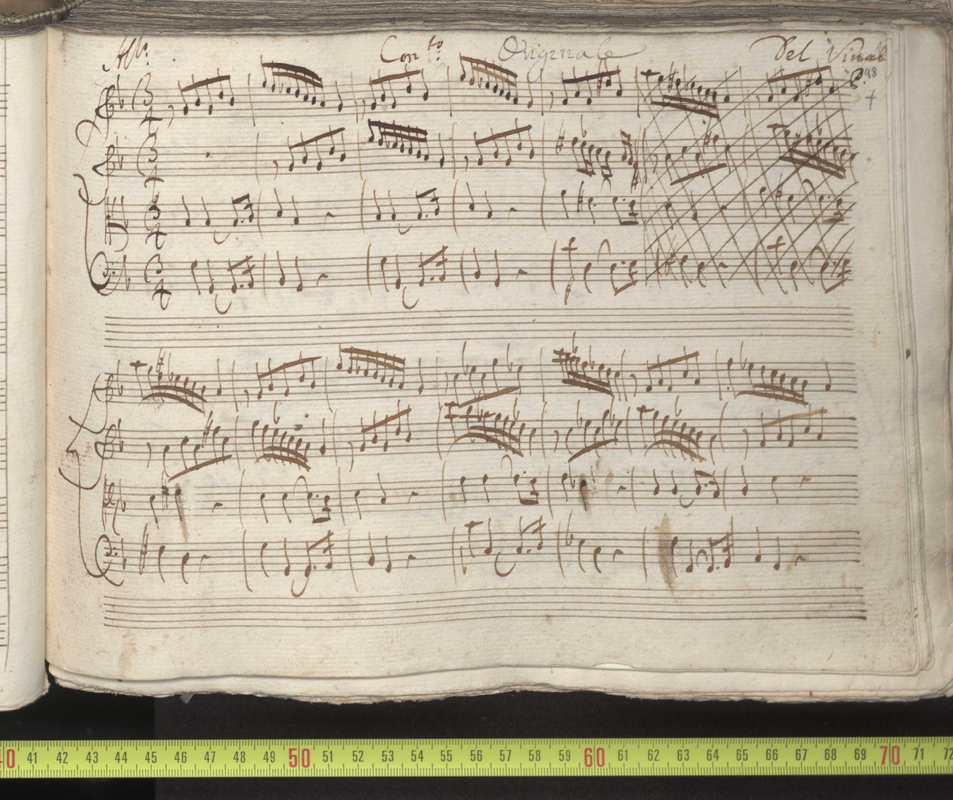 All.º Con.to Originale Del Vivaldi
298
3
4
3
4
3
4
3
4
40 41 42 43 44 45 46 47 48 49 50 51 52 53 54 55 56 57 58 59 60 61 62 63 64 65 66 67 68 69 70 71 72